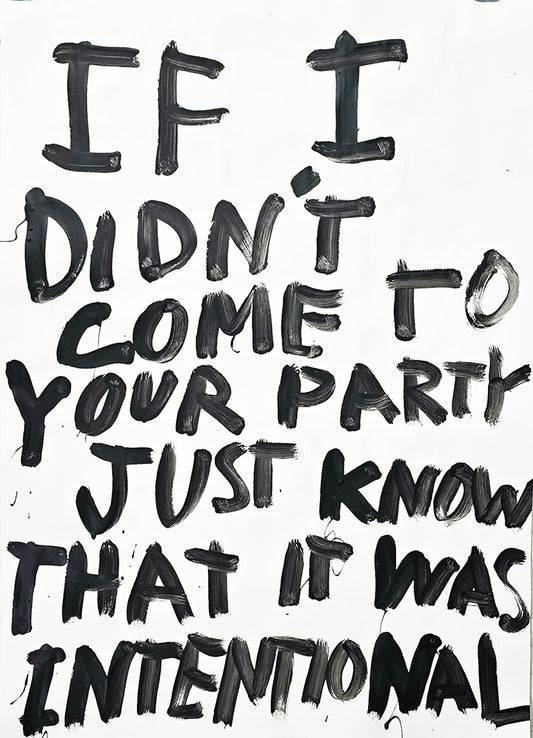 IF I
DIDN'T
COME TO
YOUR PARTY
JUST KNOW
THAT IT WAS
INTENTIONAL